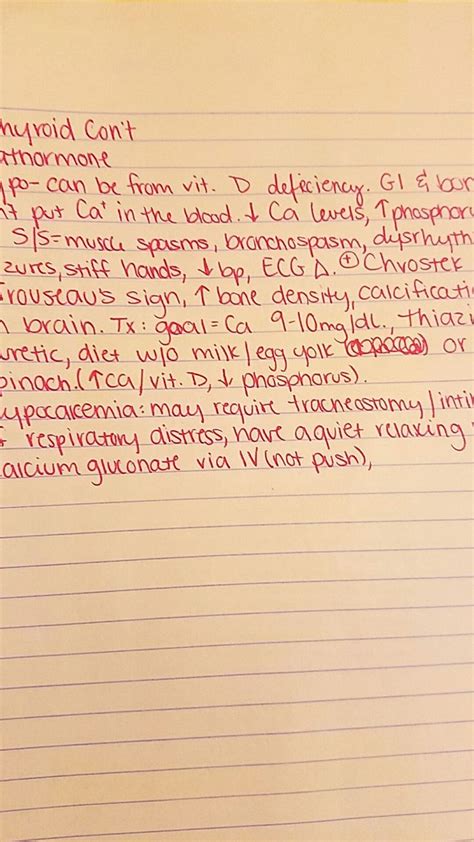 hyroid Con't
athormone
ypo- can be from vit. D deficiency. GI & bon
n't put Ca⁺ in the blood. ↓ Ca levels, ↑ phosphoru
S/S= muscle spasms, bronchospasm, dysrhyth
zures, stiff hands, ↓ bp, ECG Δ. ⊕ Chvostek
rousseau's sign, ↑ bone density, calcificati
n brain. Tx: goal = Ca 9-10mg/dL., thiazi
uretic, diet w/o milk/egg yolk or
pinach. (↑Ca/vit. D, ↓ phosphorus).
ypocalcemia: may require tracheostomy/inti
respiratory distress, have a quiet relaxing
alcium gluconate via IV (not push),